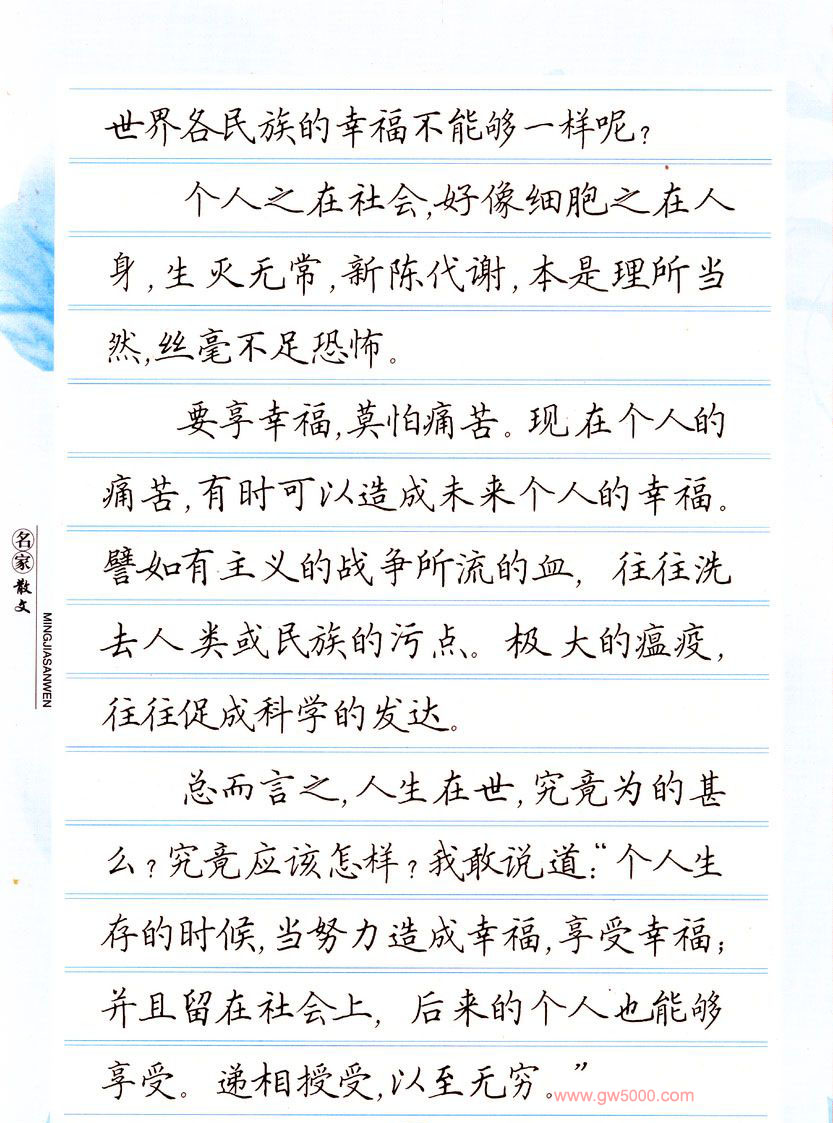 世界各民族的幸福不能够一样呢?
个人之在社会,好像细胞之在人
身,生灭无常,新陈代谢,本是理所当
然,丝毫不足恐怖。
要享幸福,莫怕痛苦。现在个人的
痛苦,有时可以造成未来个人的幸福。
譬如有主义的战争所流的血,往往洗
去人类或民族的污点。极大的瘟疫,
往往促成科学的发达。
总而言之,人生在世,究竟为的甚
么?究竟应该怎样?我敢说道:“个人生
存的时候,当努力造成幸福,享受幸福;
并且留在社会上,后来的个人也能够
享受。递相授受,以至无穷。”
www.gw5000.com
名家散文
MINGJIASANWEN